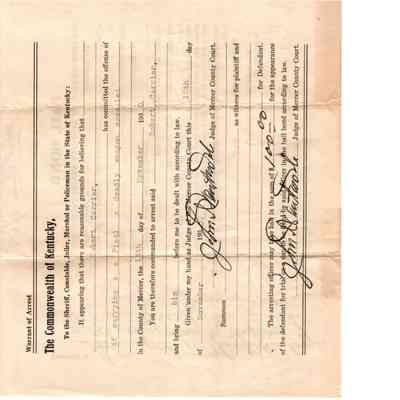 Warrant of Arrest
The Commonwealth of Kentucky,
To the Sheriff, Constable, Jailer, Marshal or Policeman in the State of Kentucky:
It appearing that there are reasonable grounds for believing that
Robert Carrier,
has committed the offense of
of carrying a Pistol a deadly weapon
in the County of Mercer, the 11th day of November 19
You are therefore commanded to arrest said Robert Carrier,
and bring him before me to be dealt with according to law.
Given under my hand as Judge of Mercer County Court this 12th day
of November 19
Judge of Mercer County Court.
Summon as witness for plaintiff and
for Defendant.
The arresting officer may take bail in the sum of $100.00 for the appearance
of the defendant for trial in the bail bond according to law.
Judge of Mercer County Court.